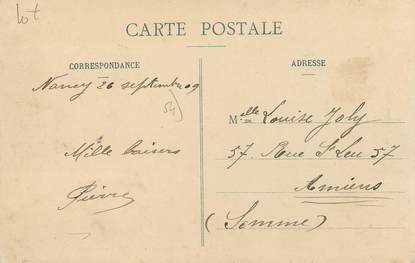 lot
CARTE POSTALE
CORRESPONDANCE
ADRESSE
Nancy 26 septembre 09
54
Mille baisers
Pierre
Melle Louise Joly
57. Rue St Leu 57
Amiens
(Somme)